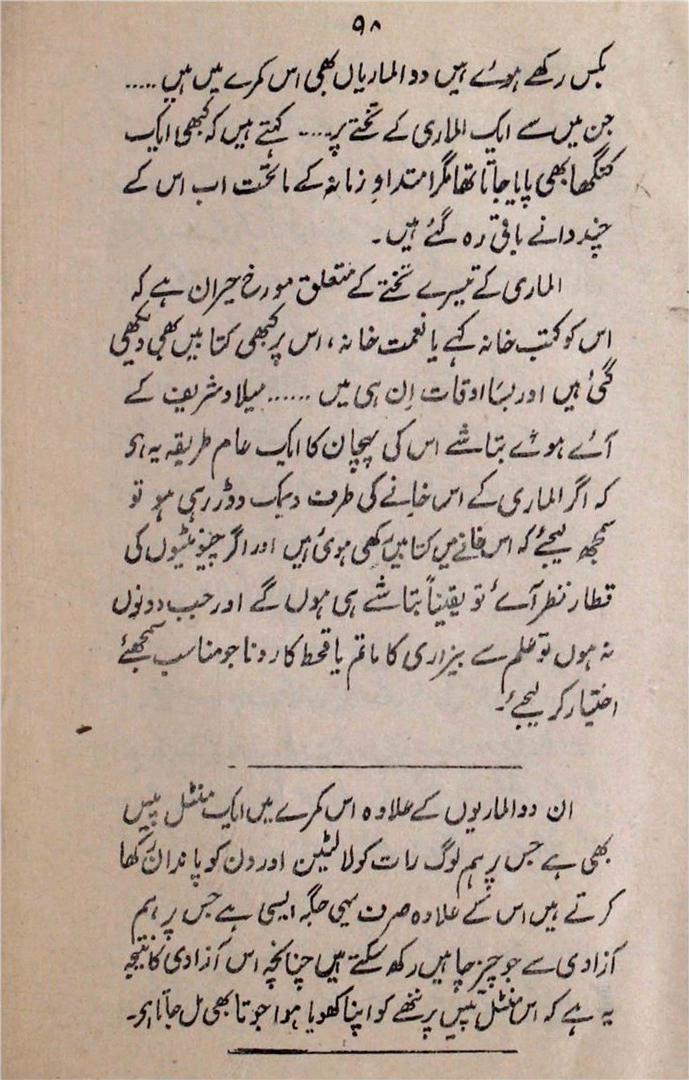 ۹۸
بکس رکھے ہوئے ہیں دو الماریاں بھی اس کمرے میں ہیں .....
جن میں سے ایک الماری کے تختے پر .... کہتے ہیں کہ کبھی ایک
کنگھا بھی پایا جاتا تھا مگر امتدادِ زمانہ کے ماتحت اب اس کے
چند دانے باقی رہ گئے ہیں۔
الماری کے تیسرے تختے کے متعلق مورخ حیران ہے کہ
اس کو کتب خانہ کہے یا نعمت خانہ، اس پر کبھی کتابیں بھی دیکھی
گئی ہیں اور بسا اوقات اِن ہی میں ...... میلاد شریف کے
آئے ہوئے بتاشے اس کی پہچان کا ایک عام طریقہ یہ ہی
کہ اگر الماری کے اس خانے کی طرف دیمک دوڑ رہی ہو تو
سمجھ لیجئے کہ اس خانے میں کتابیں رکھی ہوئی ہیں اور اگر چیونٹیوں کی
قطار نظر آئے تو یقیناً بتاشے ہی ہوں گے اور جب دونوں
نہ ہوں تو علم سے بیزاری کا ماتم یا قحط کا رونا جو مناسب سمجھئے
اختیار کر لیجئے۔
ان دو الماریوں کے علاوہ اس کمرے میں ایک منٹل پیس
بھی ہے جس پر ہم لوگ رات کو لالٹین اور دن کو پاندان رکھا
کرتے ہیں اس کے علاوہ صرف یہی جگہ ایسی ہے جس پر ہم
آزادی سے جو چیز چاہیں رکھ سکتے ہیں چنانچہ اس آزادی کا نتیجہ
یہ ہے کہ اس منٹل پیس پر ننھے کو اپنا کھویا ہوا جوتا بھی مل جاتا ہی۔